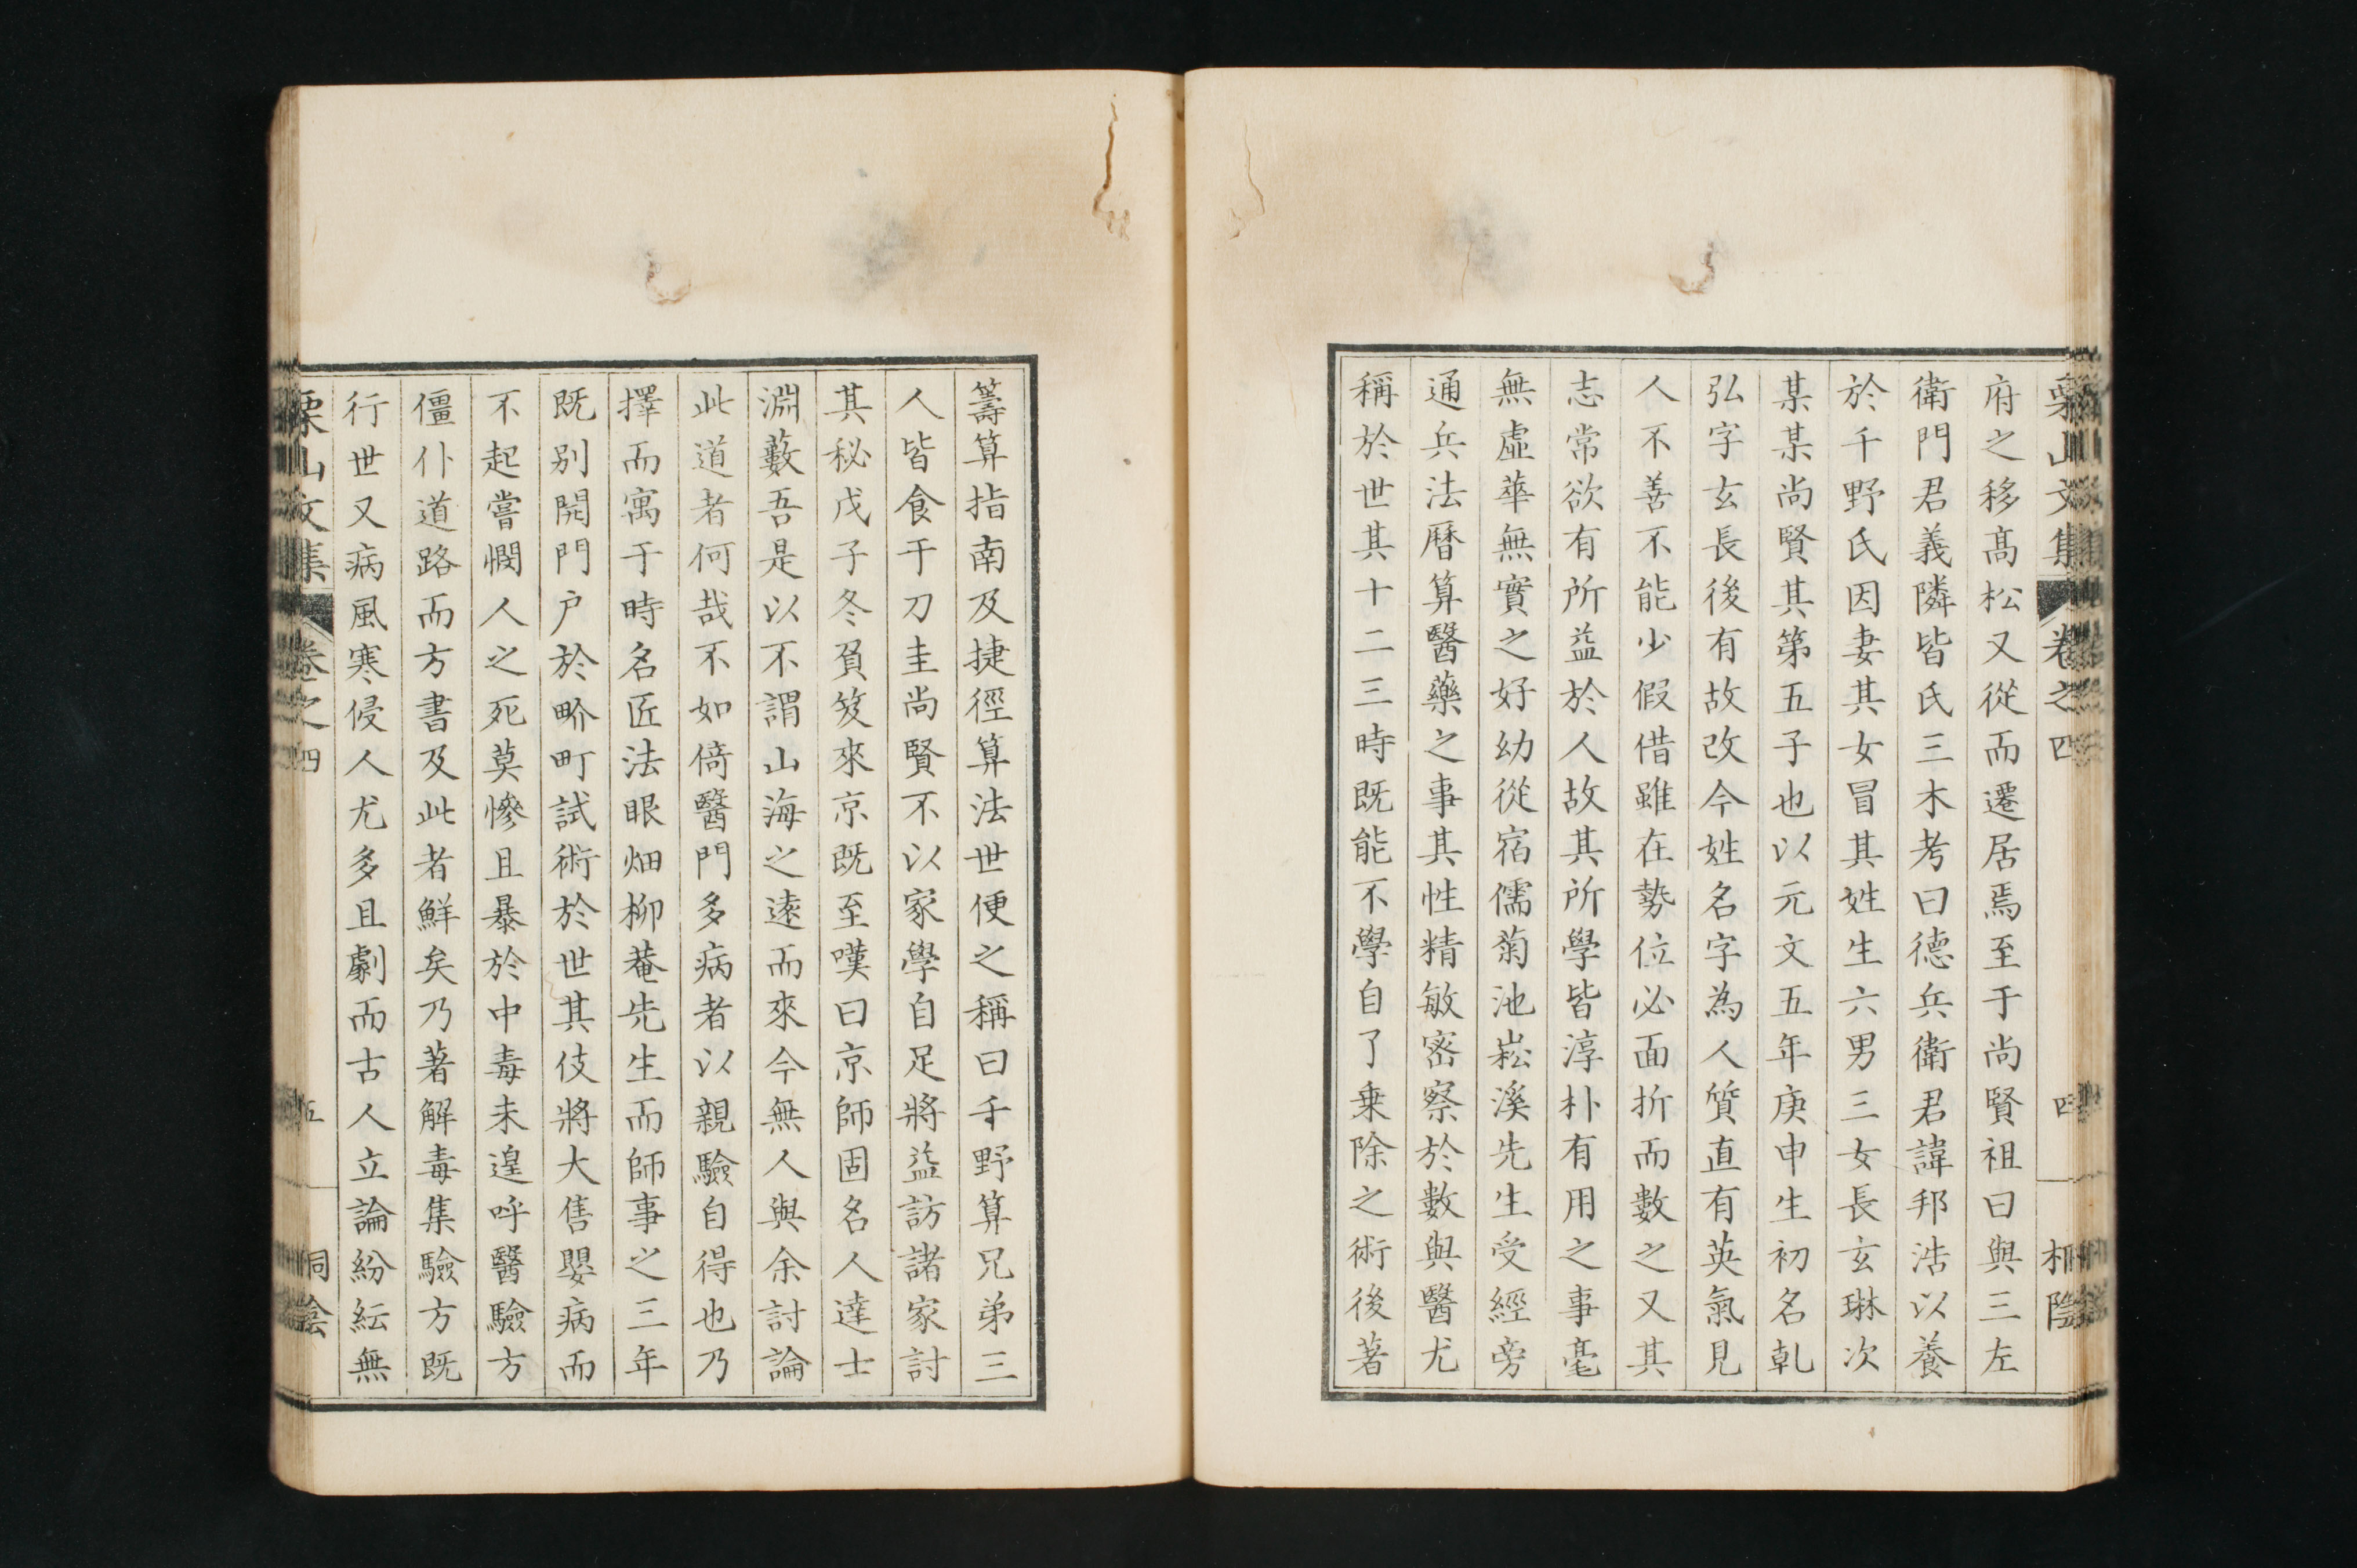 栗山文集 卷之四 四
府之移髙松又從而遷居焉至于尚賢祖曰與三左
衛門君義隣皆氏三木考曰德兵衛君諱邦浩以養
於千野氏因妻其女冒其姓生六男三女長玄琳次
某某尚賢其第五子也以元文五年庚申生初名乹
弘字玄長後有故改今姓名字為人質直有英氣見
人不善不能少假借雖在勢位必面折而數之又其
志常欲有所益於人故其所學皆淳朴有用之事毫
無虛華無實之好幼從宿儒菊池崧溪先生受經旁
通兵法曆算醫藥之事其性精敏密察於數與醫尤
稱於世其十二三時既能不學自了乗除之術後著
籌算指南及捷徑算法世便之稱曰千野算兄弟三
人皆食于刀圭尚賢不以家學自足將益訪諸家討
其秘戊子冬負笈來京既至嘆曰京師固名人達士
淵藪吾是以不謂山海之遠而來今無人與余討論
此道者何哉不如倚醫門多病者以親驗自得也乃
擇而寓于時名匠法眼畑柳菴先生而師事之三年
既别開門户於畍町試術於世其伎將大售嬰病而
不起嘗憫人之死莫慘且暴於中毒未遑呼醫驗方
僵仆道路而方書及此者鮮矣乃著解毒集驗方既
行世又病風寒侵人尤多且劇而古人立論紛紜無
栗山文集 卷之四 五